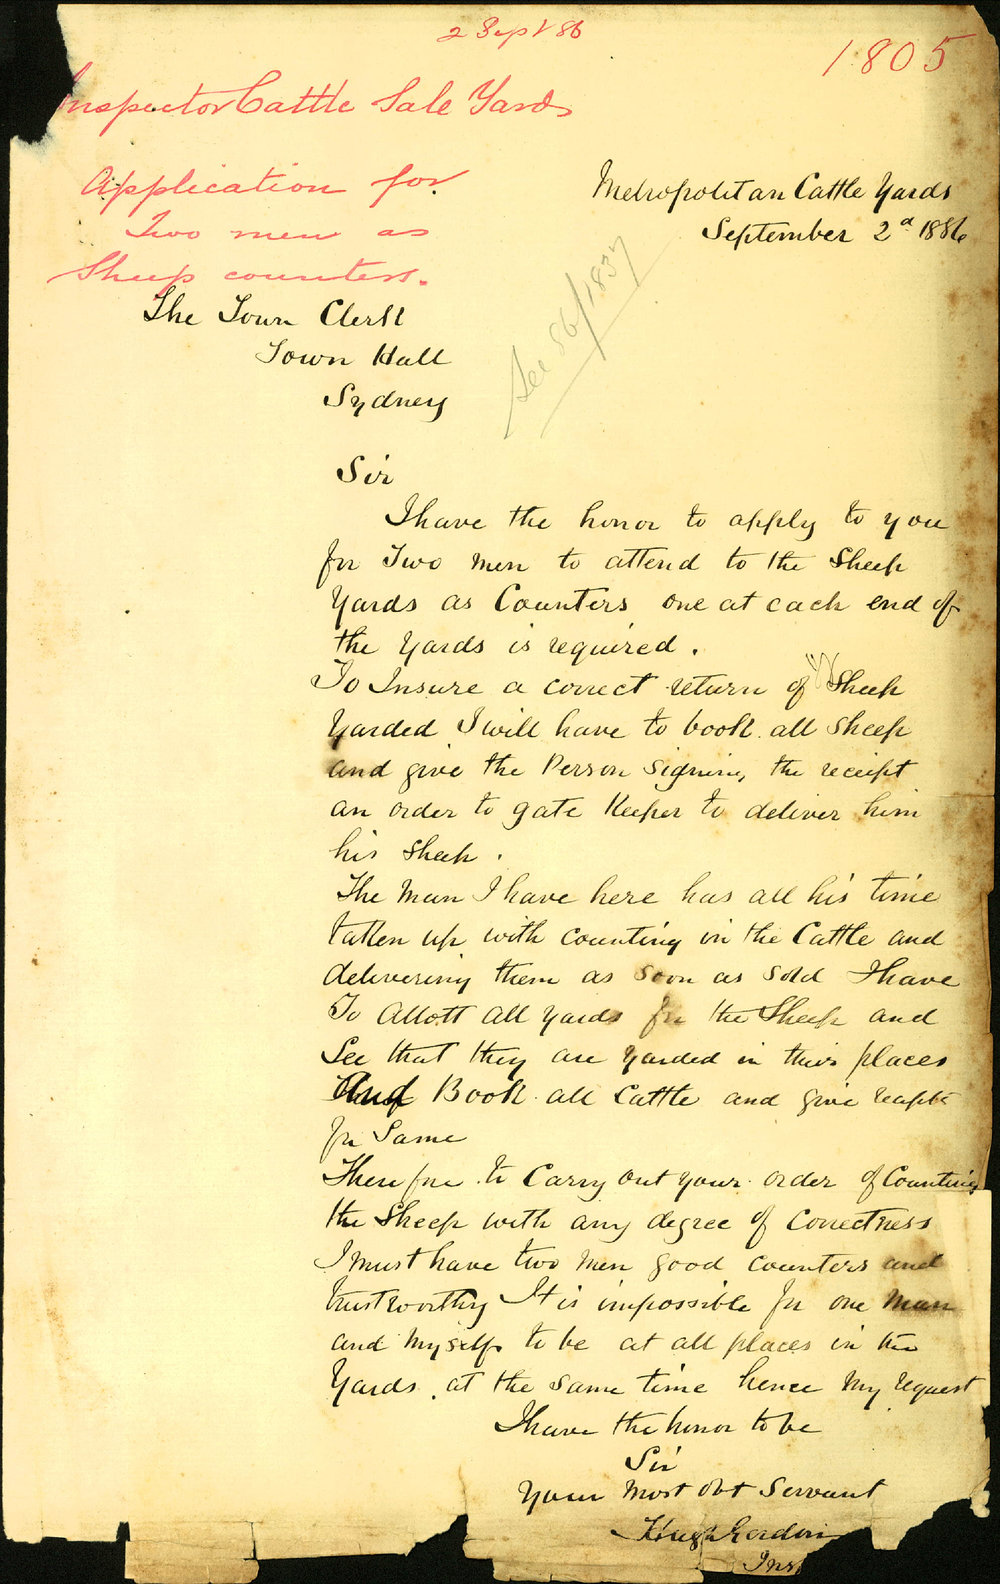 2 Sept 86
1805
Inspector Cattle Sale Yards
Application for
Two men as
Sheep counters.
Metropolitan Cattle Yards
September 2d 1886
See 86/1837
The Town Clerk
Town Hall
Sydney
Sir
I have the honor to apply to you
for Two men to attend to the Sheep
Yards as Counters one at each end of
the Yards is required.
To Insure a correct return of Sheep
Yarded I will have to book all Sheep
and give the Person Signing the receipt
an order to gate Keeper to deliver him
his Sheep.
The Man I have here has all his time
taken up with counting in the Cattle and
delivering them as soon as sold I have
To Allott all Yards for the Sheep and
See that they are yarded in their places
And Book all Cattle and give receipt
for Same
Therefore to Carry out your order of Counting
the Sheep with any degree of Correctness
I must have two men good counters and
trustworthy It is impossible for one man
and myself to be at all places in the
Yards at the same time hence my request
I have the honor to be
Sir
Your Most Obt Servant
Hugh Gordon
Ins